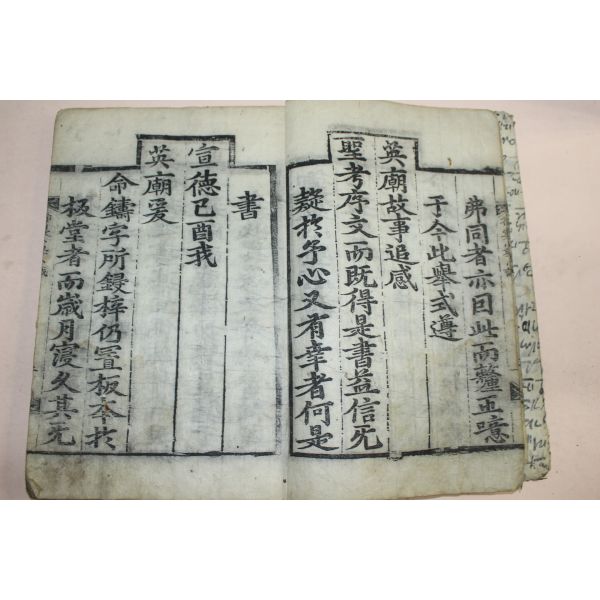 弗同者亦因此而釐正噫
于今此擧式遵
英廟故事追感
聖考序文而既得是書益信无
疑於予心又有幸者何是
書
宣德己酉我
英廟爰
命鑄字所鋟梓仍置板本於
板堂者而歲月寖久其无